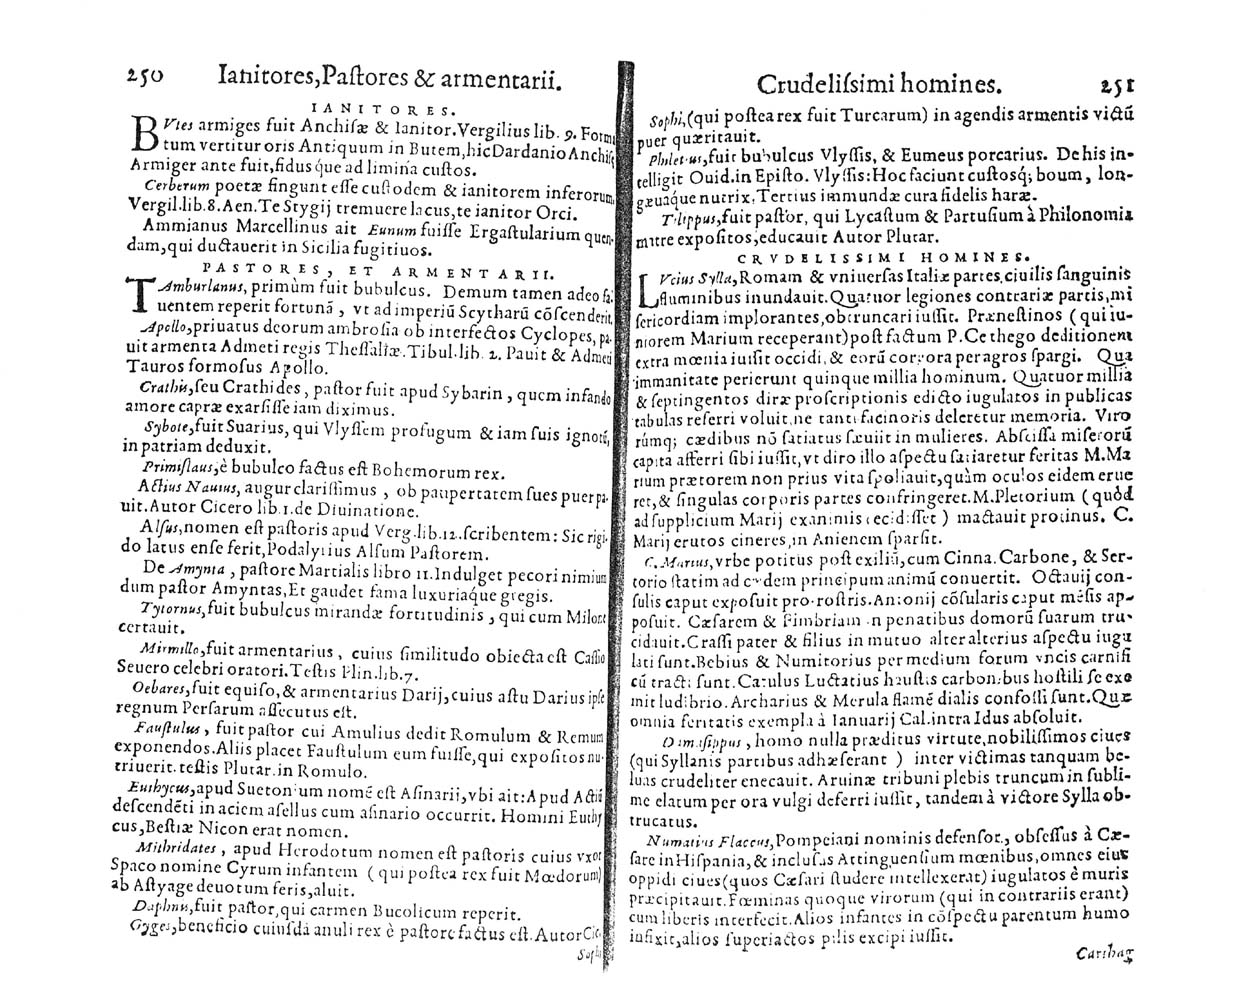 250 Ianitores,Paſtores & armentarii.
IANITORES.
BVtes armiges fuit Anchiſæ & Ianitor.Vergilius lib. 9. Form
tum vertitur oris Antiquum in Butem,hic Dardanio Anchiſ
Armiger ante fuit,fidus que ad limina cuſtos.
Cerberum poetæ fingunt eſſe cuſtodem & ianitorem inferorum
Vergil.lib.8.Aen.Te Stygij tremuere lacus,te ianitor Orci.
Ammianus Marcellinus ait Eunum fuiſſe Ergaſtularium quen-
dam,qui ductauerit in Sicilia fugitiuos.
PASTORES, ET ARMENTARII.
TAmburlanus, primùm fuit bubulcus. Demum tamen adeo fa-
uentem reperit fortunā, vt ad imperiū Scytharū cōſcenderit.
Apollo,priuatus deorum ambroſia ob interfectos Cyclopes, pa-
uit armenta Admeti regis Theſſaliæ.Tibul.lib. 2. Pauit & Admeti
Tauros formoſus Apollo.
Crathis,ſeu Crathides, paſtor fuit apud Sybarin, quem infando
amore capræ exarſiſſe iam diximus.
Sybote,fuit Suarius, qui Vlyſſem profugum & iam ſuis ignotū,
in patriam deduxit.
Primiſlaus,è bubulco factus eſt Bohemorum rex.
Actius Nauius, augur clariſſimus, ob paupertatem ſues puer pa-
uit.Autor Cicero lib.1.de Diuinatione.
Alſus,nomen eſt paſtoris apud Verg.lib.12.ſcribentem: Sic rigi-
do latus enſe ferit,Podalyrius Alſum Paſtorem.
De Amynta, paſtore Martialis libro 11.Indulget pecori nimium
dum paſtor Amyntas,Et gaudet fama luxuriaque gregis.
Tytornus,fuit bubulcus mirandæ fortitudinis, qui cum Milone
certauit.
Mirmillo,fuit armentarius, cuius ſimilitudo obiecta eſt Caſſio
Seuero celebri oratori.Teſtis Plin.lib.7.
Oebares,fuit equiſo,& armentarius Darij,cuius aſtu Darius ipſe
regnum Perſarum aſſecutus eſt.
Fauſtulus, fuit paſtor cui Amulius dedit Romulum & Remum
exponendos.Aliis placet Fauſtulum eum fuiſſe,qui expoſitos nu-
triuerit.teſtis Plutar.in Romulo.
Euthycus,apud Suetonium nomē eſt Aſinarii,vbi ait:Apud Actiū
deſcendēti in aciem aſellus cum aſinario occurrit. Homini Euthy
cus,Beſtiæ Nicon erat nomen.
Mithridates, apud Herodotum nomen eſt paſtoris cuius vxor
Spaco nomine Cyrum infantem (qui poſtea rex fuit Mœdorum)
ab Aſtyage deuotum feris,aluit.
Daphnis,fuit paſtor,qui carmen Bucolicum reperit.
Gyges,beneficio cuiuſdā anuli rex è paſtore factus eſt.Autor Cic.
Sophi
Crudeliſsimi homines. 251
Sophi,(qui poſtea rex fuit Turcarum) in agendis armentis victū
puer quæritauit.
Philetius,fuit bubulcus Vlyſſis, & Eumeus porcarius. De his in-
telligit Ouid.in Epiſto. Vlyſſis:Hoc faciunt cuſtosq; boum, lon-
gæuaque nutrix,Tertius immundæ cura fidelis haræ.
Tilippus,fuit paſtor, qui Lycaſtum & Partuſium à Philonomia
matre expoſitos,educauit Autor Plutar.
CRVDELISSIMI HOMINES.
LVcius Sylla,Romam & vniuerſas Italiæ partes,ciuilis ſanguinis
fluminibus inundauit.Quatuor legiones contrariæ partis,mi
ſericordiam implorantes,obtruncari iuſſit. Præneſtinos (qui iu-
niorem Marium receperant)poſt factum P.Cethego deditionem
extra mœnia iuſſit occidi,& eorū corpora per agros ſpargi. Qua
immanitate perierunt quinque millia hominum. Quatuor millia
& ſeptingentos diræ proſcriptionis edicto iugulatos in publicas
tabulas referri voluit,ne tanti facinoris deleretur memoria. Viro
rúmq; cædibus nō ſatiatus ſæuiit in mulieres. Abſciſſa miſerorū
capita afferri ſibi iuſſit,vt diro illo aſpectu ſatiaretur feritas M.Ma
rium prætorem non prius vita ſpoliauit,quàm oculos eidem erue
ret,& ſingulas corporis partes confringeret.M.Pletorium (quòd
ad ſupplicium Marij exanimis cecidiſſet) mactauit protinus. C.
Marij erutos cineres,in Anienem ſparſit.
C. Marius,vrbe potitus poſt exiliū,cum Cinna.Carbone, & Ser-
torio ſtatim ad cædem principum animū conuertit. Octauij con-
ſulis caput expoſuit pro roſtris.Antonij cōſularis caput mēſis ap-
poſuit. Cæſarem & Fimbriam in penatibus domorū ſuarum tru-
cidauit.Craſſi pater & filius in mutuo alter alterius aſpectu iugu
lati ſunt.Bebius & Numitorius per medium forum vncis carnifi
cū tracti ſunt.Catulus Luctatius hauſtis carbonibus hoſtili ſe exe
mit ludibrio.Archarius & Merula flamē dialis confoſſi ſunt.Quæ
omnia feritatis exempla à Ianuarij Cal.intra Idus abſoluit.
Damaſippus, homo nulla præditus virtute,nobiliſſimos ciues
(qui Syllanis partibus adhæſerant) inter victimas tanquam be-
luas crudeliter enecauit. Aruinæ tribuni plebis truncum in ſubli-
me elatum per ora vulgi deferri iuſſit, tandem à victore Sylla ob-
trucatus.
Numatius Flaccus,Pompeiani nominis defenſor, obſeſſus à Cæ-
ſare in Hiſpania,& incluſus Attinguenſium mœnibus,omnes eius
oppidi ciues(quos Cæſari ſtudere intellexerat) iugulatos è muris
præcipitauit.Fœminas quoque virorum (qui in contrariis erant)
cum liberis interfecit.Alios infantes in cōſpectu parentum humo
infixit,alios ſuperiactos pilis excipi iuſſit.
Carthag